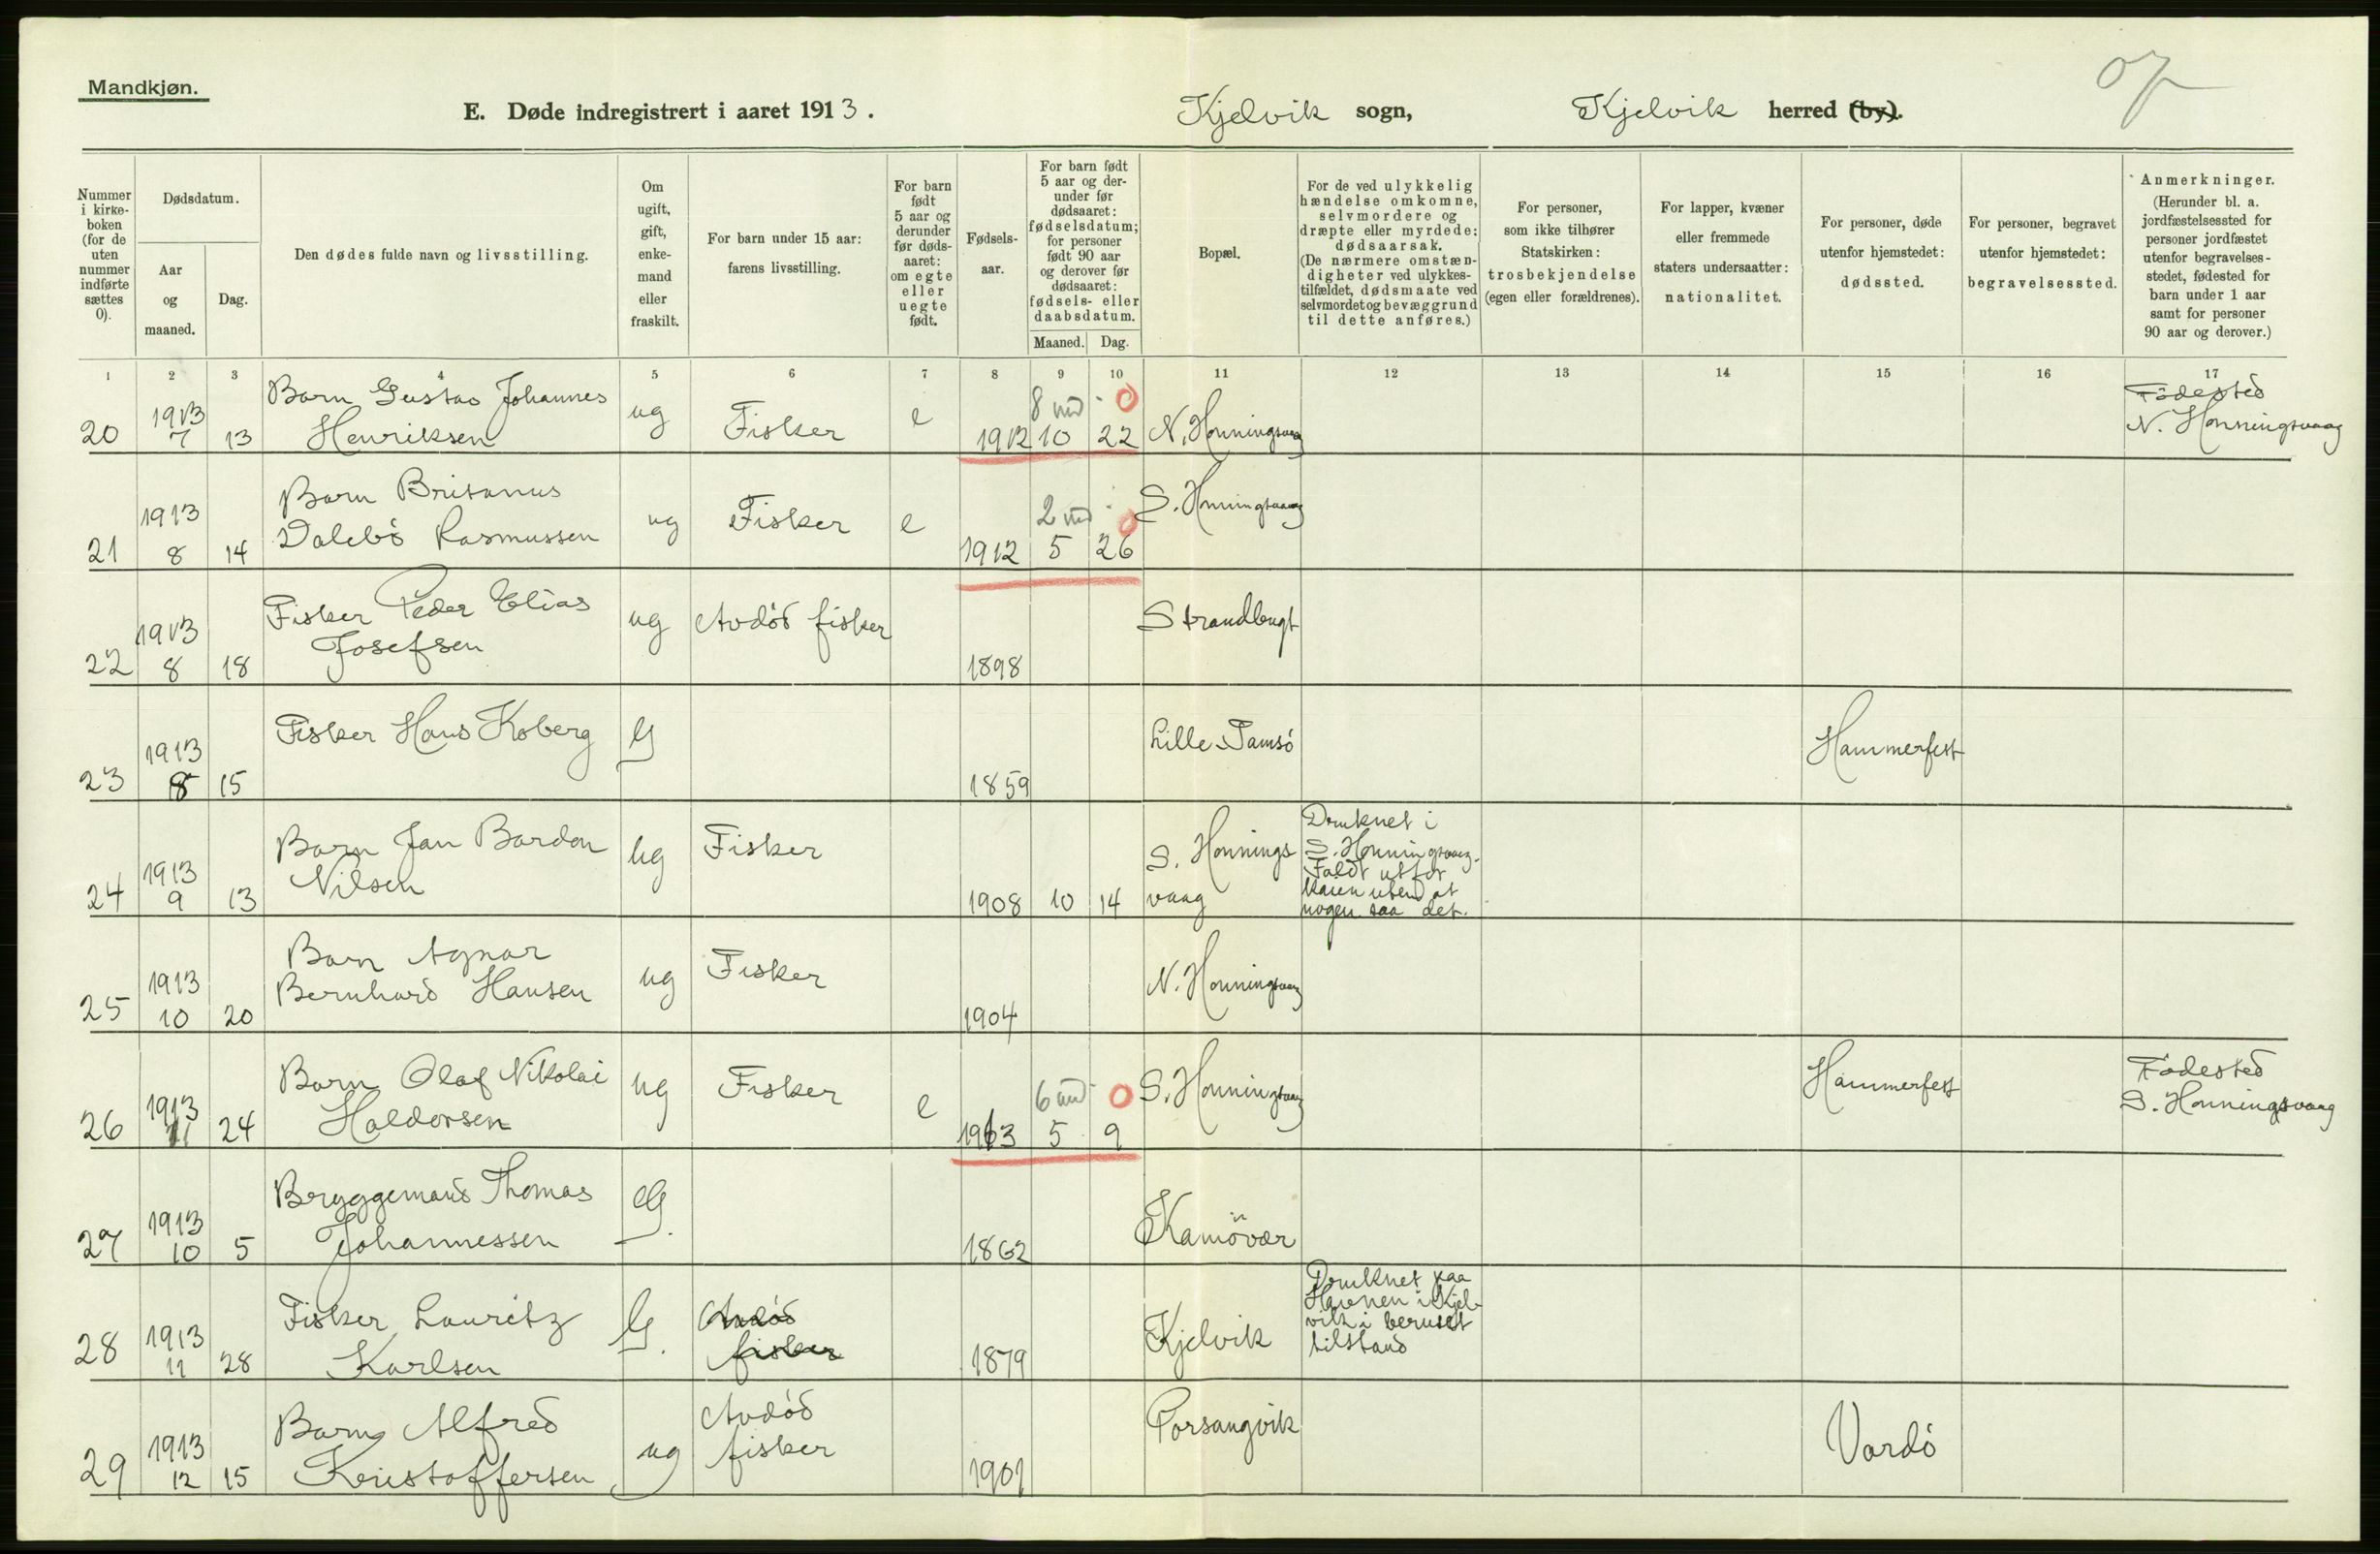 Mandkjøn.
E. Døde indregistrert i aaret 1913.
Kjelvik sogn, Kjelvik herred (by).
Nummer i kirke-boken (for de uten nummer indførte sættes 0).
Dødsdatum.
Aar og maaned.
Dag.
Den dødes fulde navn og livsstilling.
Om ugift, gift, enke-mand eller fraskilt.
For barn under 15 aar: farens livsstilling.
For barn født 5 aar og derunder før døds-aaret: om egte eller uegte født.
Fødsels-aar.
For barn født 5 aar og der-under før dødsaaret: fødselsdatum; for personer født 90 aar og derover før dødsaaret: fødsels- eller daabsdatum.
Maaned. Dag.
Bopæl.
For de ved ulykkelig hændelse omkomne, selvmordere og dræpte eller myrdede: dødsaarsak. (De nærmere omstæn-digheter ved ulykkes-tilfældet, dødsmaate ved selvmordet og bevæggrund til dette anføres.)
For personer, som ikke tilhører Statskirken: trosbekjendelse (egen eller forældrenes).
For lapper, kvæner eller fremmede staters undersaatter: nationalitet.
For personer, døde utenfor hjemstedet: dødssted.
For personer, begravet utenfor hjemstedet: begravelsessted.
Anmerkninger. (Herunder bl. a. jordfæstelsessted for personer jordfæstet utenfor begravelses-stedet, fødested for barn under 1 aar samt for personer 90 aar og derover.)
1 2 3 4 5 6 7 8 9 10 11 12 13 14 15 16 17
20 1913 7 13 Barn Gustav Johannes Henriksen ug Fisker e 1912 8 md 0 10 22 N. Honningsvaag Födested N. Honningsvaag
21 1913 8 14 Barn Britanus Dalebö Rasmussen ug Fisker e 1912 2 md 0 5 26 S. Honningsvaag
22 1913 8 18 Fisker Peder Elias Josefsen ug Avdöd fisker 1898 Strandbugt
23 1913 8 15 Fisker Hans Koberg G 1859 Lille Tamsö Hammerfest
24 1913 9 13 Barn Jan Bardon Nilsen ug Fisker 1908 10 14 S. Honnings vaag Druknet i S. Honningsvaag. Faldt utfor kaien uten at nogen saa det.
25 1913 10 20 Barn Agnar Bernhard Hansen ug Fisker 1904 N. Honningsvaag
26 1913 11 24 Barn Olaf Nikolai Haldorsen ug Fisker e 1913 6 md 0 5 9 S. Honningsvaag Hammerfest Födested S. Honningsvaag
27 1913 10 5 Bryggemand Thomas Johannessen G. 1862 Kamövær
28 1913 11 28 Fisker Lauritz Karlsen G. Avdöd fisker 1879 Kjelvik Druknet paa Havnen i Kjel-vik i beruset tilstand
29 1913 12 15 Barn Alfred Kristoffersen ug Avdöd fisker 1901 Porsangvik Vardö